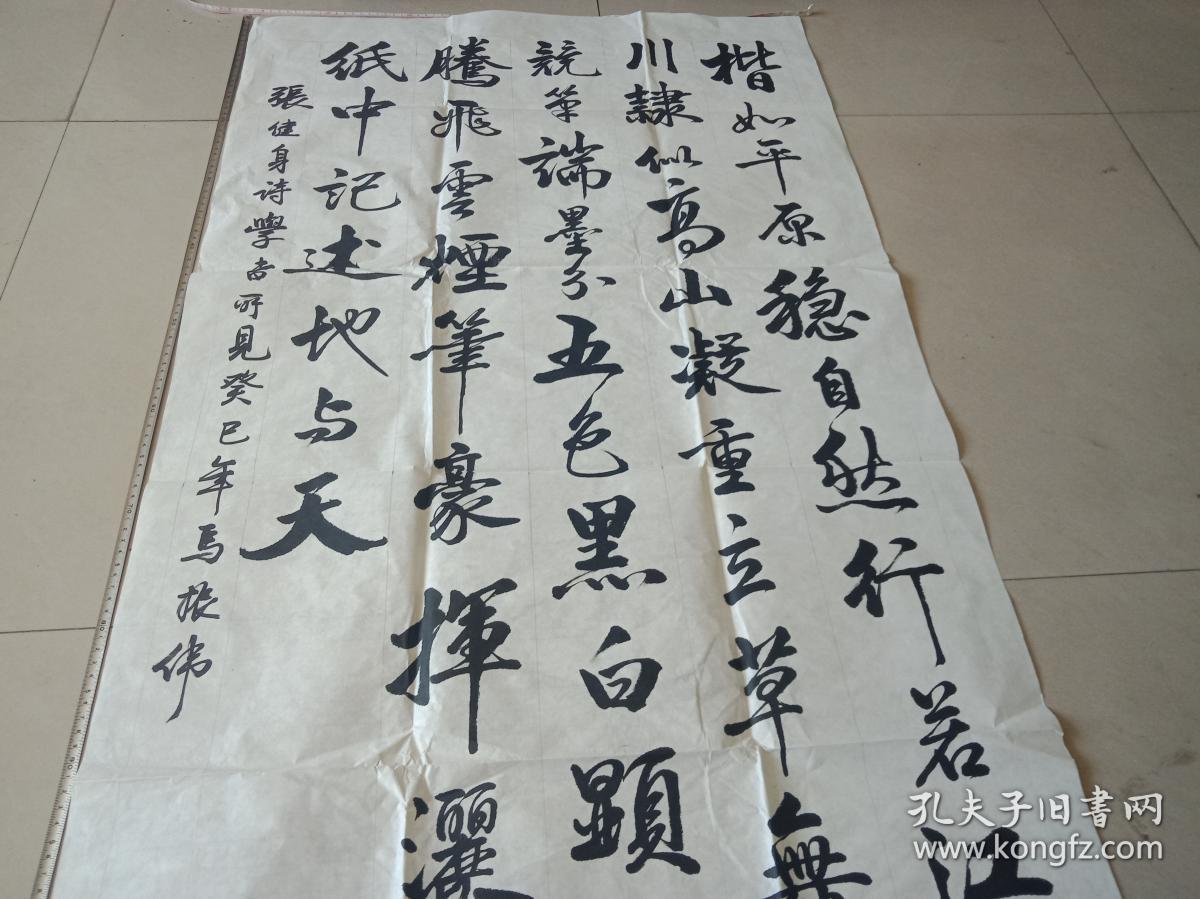 楷如平原穏自然行若江
川隷似高山凝重立草無
競筆端墨分五色黑白顕
騰飛雲煙筆豪揮灑
紙中記述地与天
張健身诗學書所見癸巳年馬振伟
孔夫子旧書网
www.kongfz.com